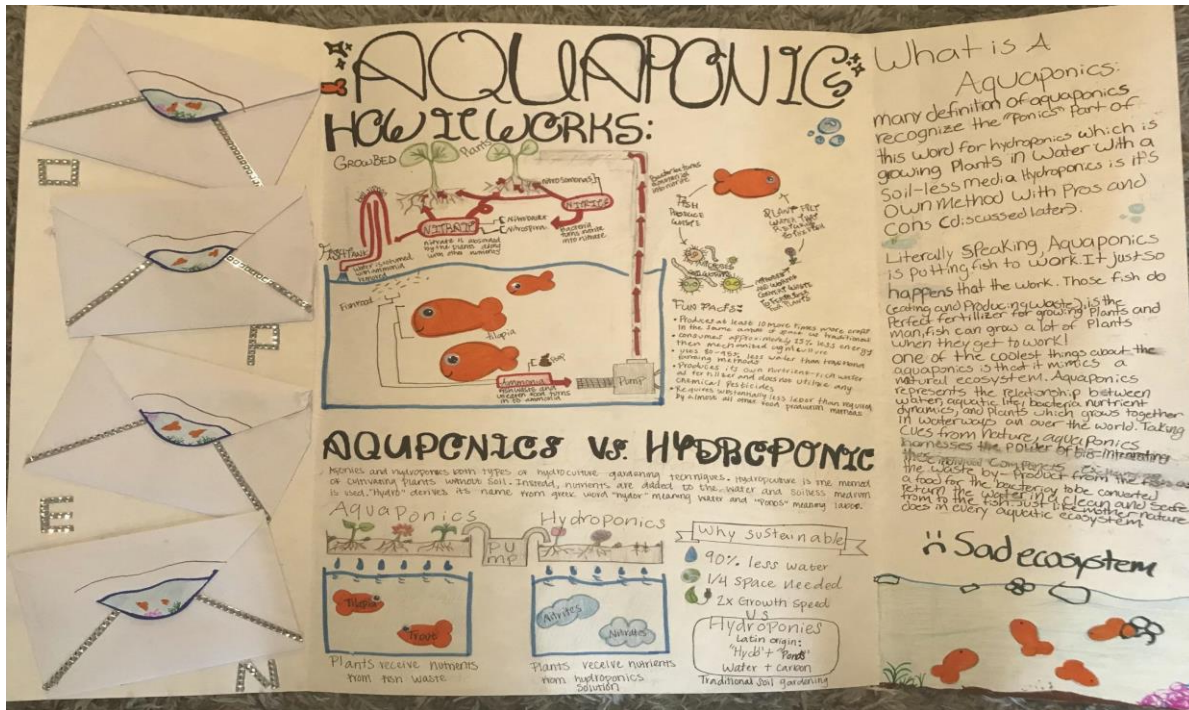 O
P
E
N
AQUAPONICS
HOW IT WORKS:
GROWBED
Plants
Nitrosomonas
NITRITE
NITRATE
Nitrobacter
Nitrospira
Bacteria
turns nitrite
into nitrate
nitrate is absorbed
by the plants along
with other nutrients
FISH TANK
water is returned
with ammonia
removed
Fish food
tilapia
Poop
Ammonia
fish waste and
uneaten food turns
in to ammonia
Pump
FISH
PRODUCE
WASTE
PLANT FILT
WATER THAT
RETURNS TO
FISH TANK
MICROBES
AND WORMS
CONVERT WASTE
TO FERTILIZER
FOR PLANTS
Fun Facts:
• Produces at least 10 more times more crops
in the same amount of space as traditional
• consumes approximately 25% less energy
then mechanized agriculture
• uses 80-95% less water than traditional
farming methods
• Produces its own nutrient-rich water
as fertilizer and does not utilize any
chemical pesticides
• Requires substantially less labor than required
by almost all other food production methods
AQUPONICS VS. HYDROPONIC
and hydroponics both types of hydroculture gardening techniques. Hydroculture is the method
of cultivating plants without soil. Instead, nutrients are added to the water and soiless medium
is used. "Hydro" derives its name from greek word "hydor" meaning water and "Ponos" meaning labor.
Aquaponics
PUMP
Hydroponics
Tilapia
Trout
Nitrites
Nitrates
Plants receive nutrients
from fish waste
Plants receive nutrients
from hydroponics
Solution
Why sustainable
90% less water
1/4 space needed
2x Growth speed
VS
Hydroponies
Latin origin:
"Hydo" + "Ponos"
Water + carbon
Traditional soil gardening
What is A
Aquaponics:
many definition of aquaponics
recognize the "Ponics" part of
this word for hydroponics which is
growing Plants in Water With a
Soil-less media Hydroponics is it's
Own Method With Pros and
Cons (discussed later).
Literally speaking, Aquaponics
is putting fish to work. It just so
happens that the work. Those fish do
(eating and Producing waste), is the
Perfect fertillizer for growing Plants and
man, fish can grow a lot of Plants
when they get to work!
one of the coolest things about the
aquaponics is that it mimics a
natural ecosystem. Aquaponics
represents the relationship between
water, aquatic life, bacteria nurtrient
dynamics, and plants which grows together
in waterways an over the world. Taking
Cues from nature, aquaponics
harnesses the power of bio-integrating
these individual
the waste by-product from the fish as
a food for the bacteria, to be converted
return the water in a clean and safe
from to the fish. Just like mother nature
does in every aquatic ecosystem
Sad ecosystem